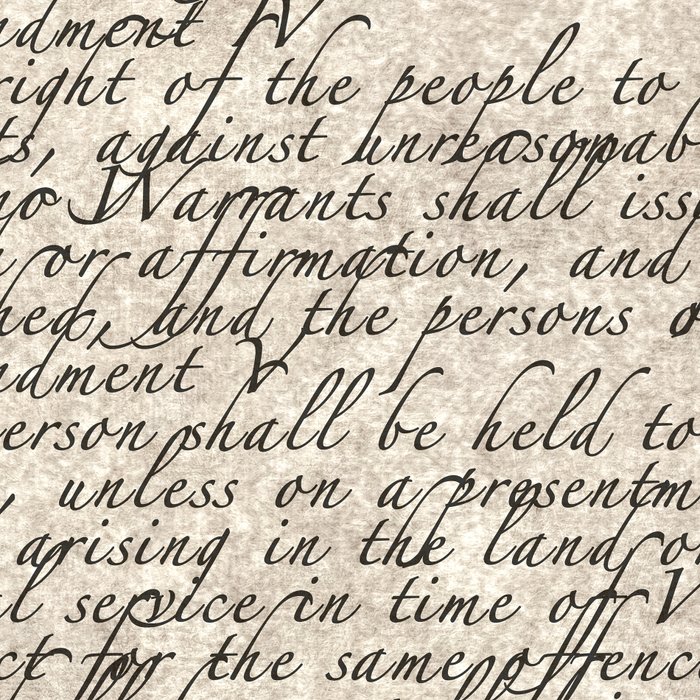 ndment IV
right of the people to
ts, against unreasonab
no Warrants shall iss
or affirmation, and
hed, and the persons o
ndment V
person shall be held to
, unless on a presentm
arising in the land or
al service in time of W
ct for the same offenc